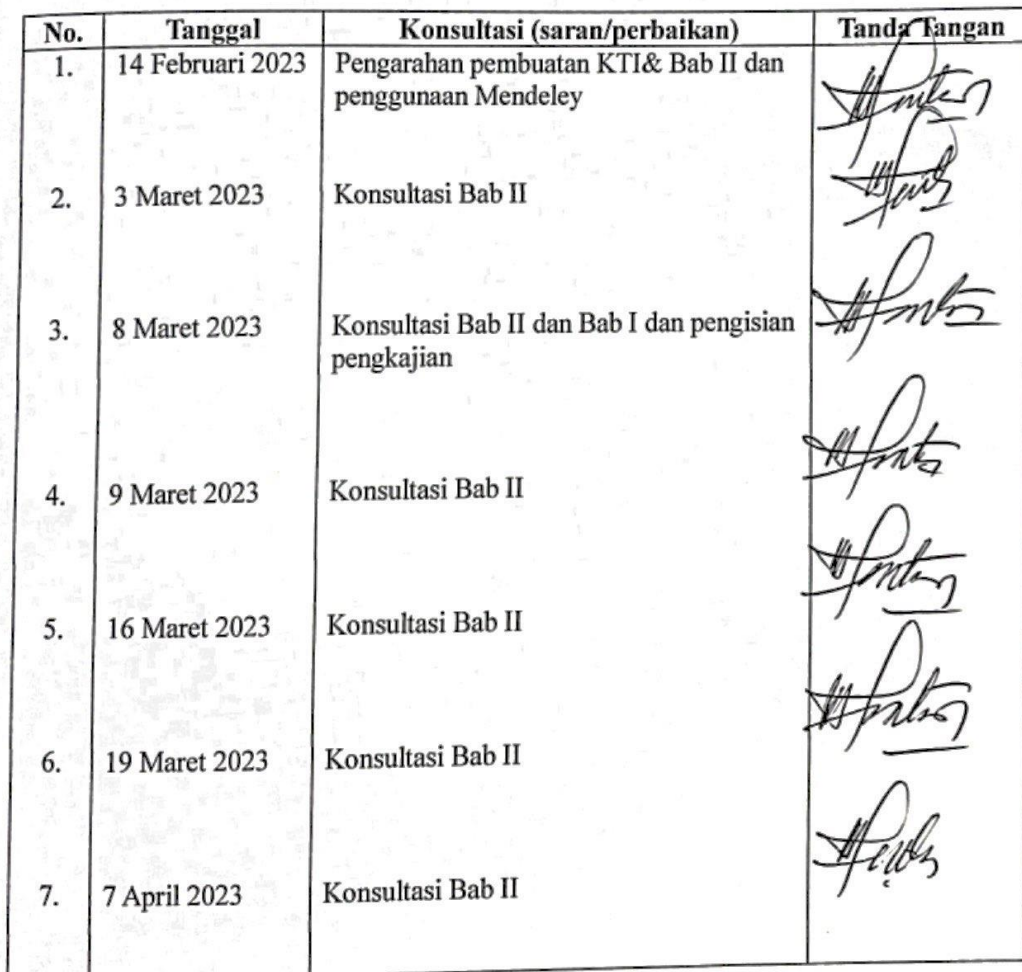 No. Tanggal Konsultasi (saran/perbaikan) Tanda Tangan
1. 14 Februari 2023 Pengarahan pembuatan KTI& Bab II dan
penggunaan Mendeley
2. 3 Maret 2023 Konsultasi Bab II
3. 8 Maret 2023 Konsultasi Bab II dan Bab I dan pengisian
pengkajian
4. 9 Maret 2023 Konsultasi Bab II
5. 16 Maret 2023 Konsultasi Bab II
6. 19 Maret 2023 Konsultasi Bab II
7. 7 April 2023 Konsultasi Bab II